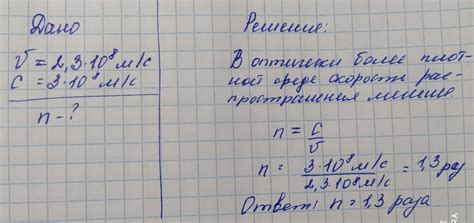 Дано
V = 2,3·10⁸ м/с
C = 3·10⁸ м/с
n - ?
Решение:
В оптически более плот-
ной среде скорость рас-
пространения меньше.
n = C/V
n = 3·10⁸ м/с / 2,3·10⁸ м/с = 1,3 раз
Ответ: n = 1,3 раза